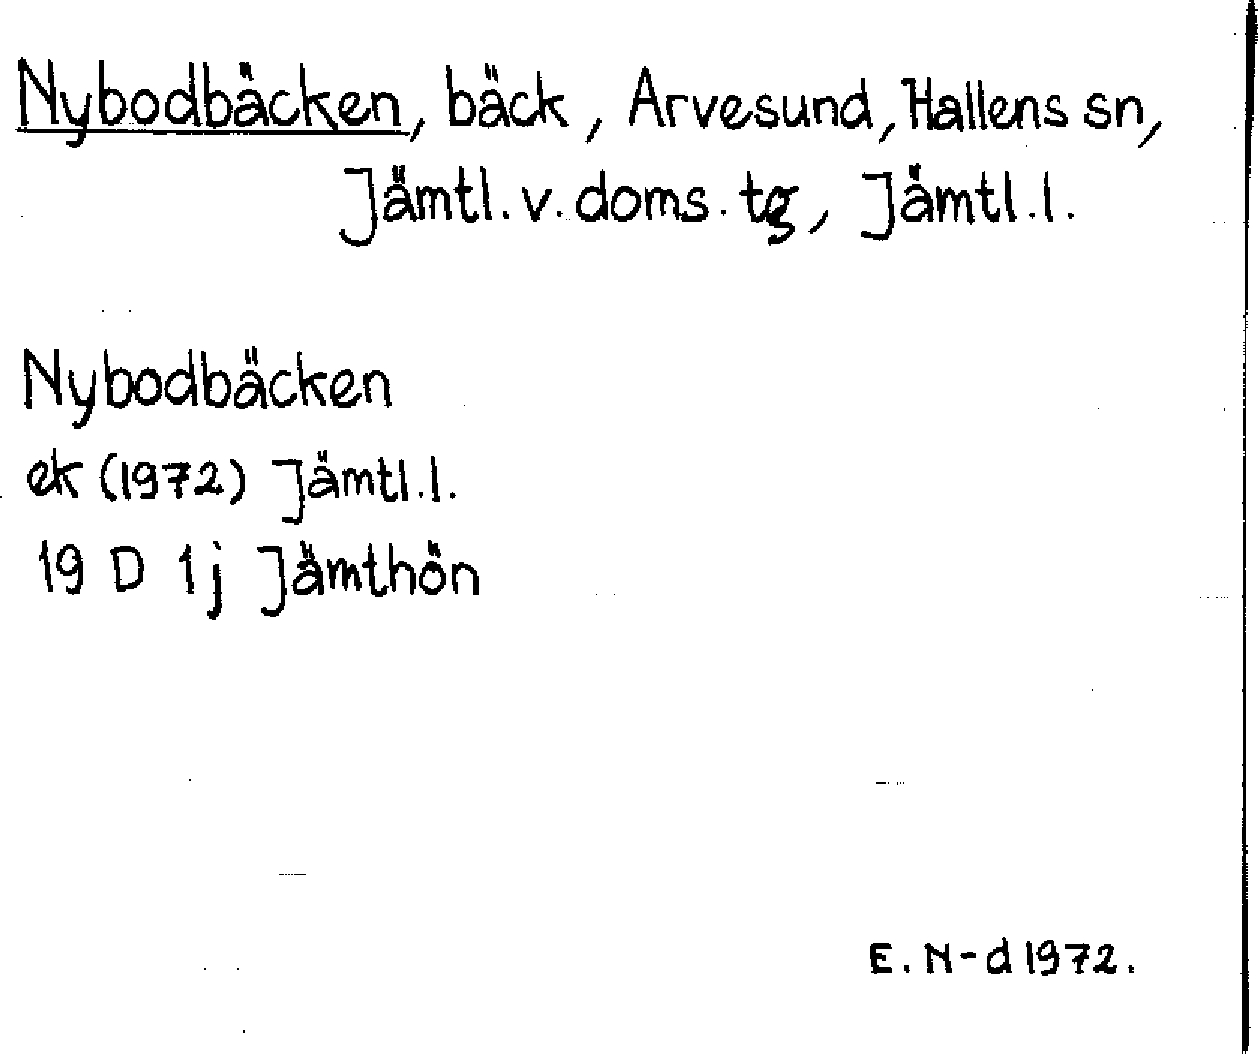 Nybodbäcken, bäck, Arvesund, Hallens sn,
Jämtl. v. doms. tg, Jämtl.l.
Nybodbäcken
ek (1972) Jämtl.l.
19 D 1j Jämthön
E. N-d 1972.